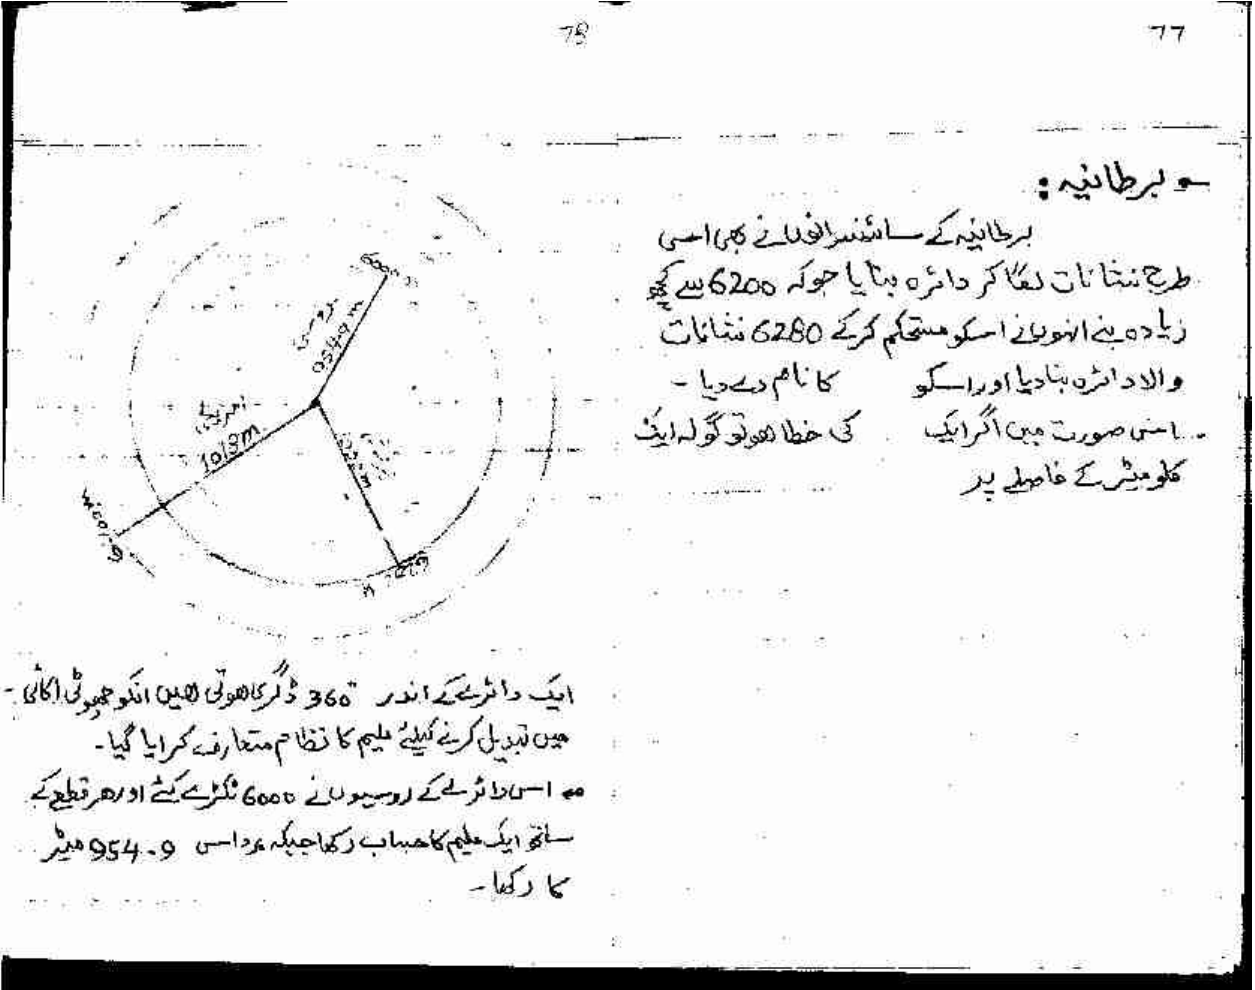 77
برطانیہ:
برطانیہ کے سائنسدانوں نے بھی اسی
طرح نشانات لگا کر دائرہ بنایا جوکہ 6200 سے کچھ
زیادہ بنے انہوں نے اسکو مستحکم کرکے 6280 نشانات
والا دائرہ بنا دیا اور اسکو کا نام دے دیا ۔
اسی صورت میں اگر ایک کی خطا ھو تو گولہ ایک
کلومیٹر کے فاصلے پر
78
6000
روسی
954.9 m
امریکی
1019m
ایک دائرے کے اندر 360° ڈگری ھوتی ھیں انکو چھوٹی اکائی
میں تبدیل کرنے کیلئے ملیم کا نظام متعارف کرایا گیا۔
اس دائرے کے روسیوں نے 6000 ٹکڑے کئے اور ھر قطع کے
ساتھ ایک ملیم کا حساب رکھا جبکہ رداس 954.9 میٹر
کا رکھا ۔